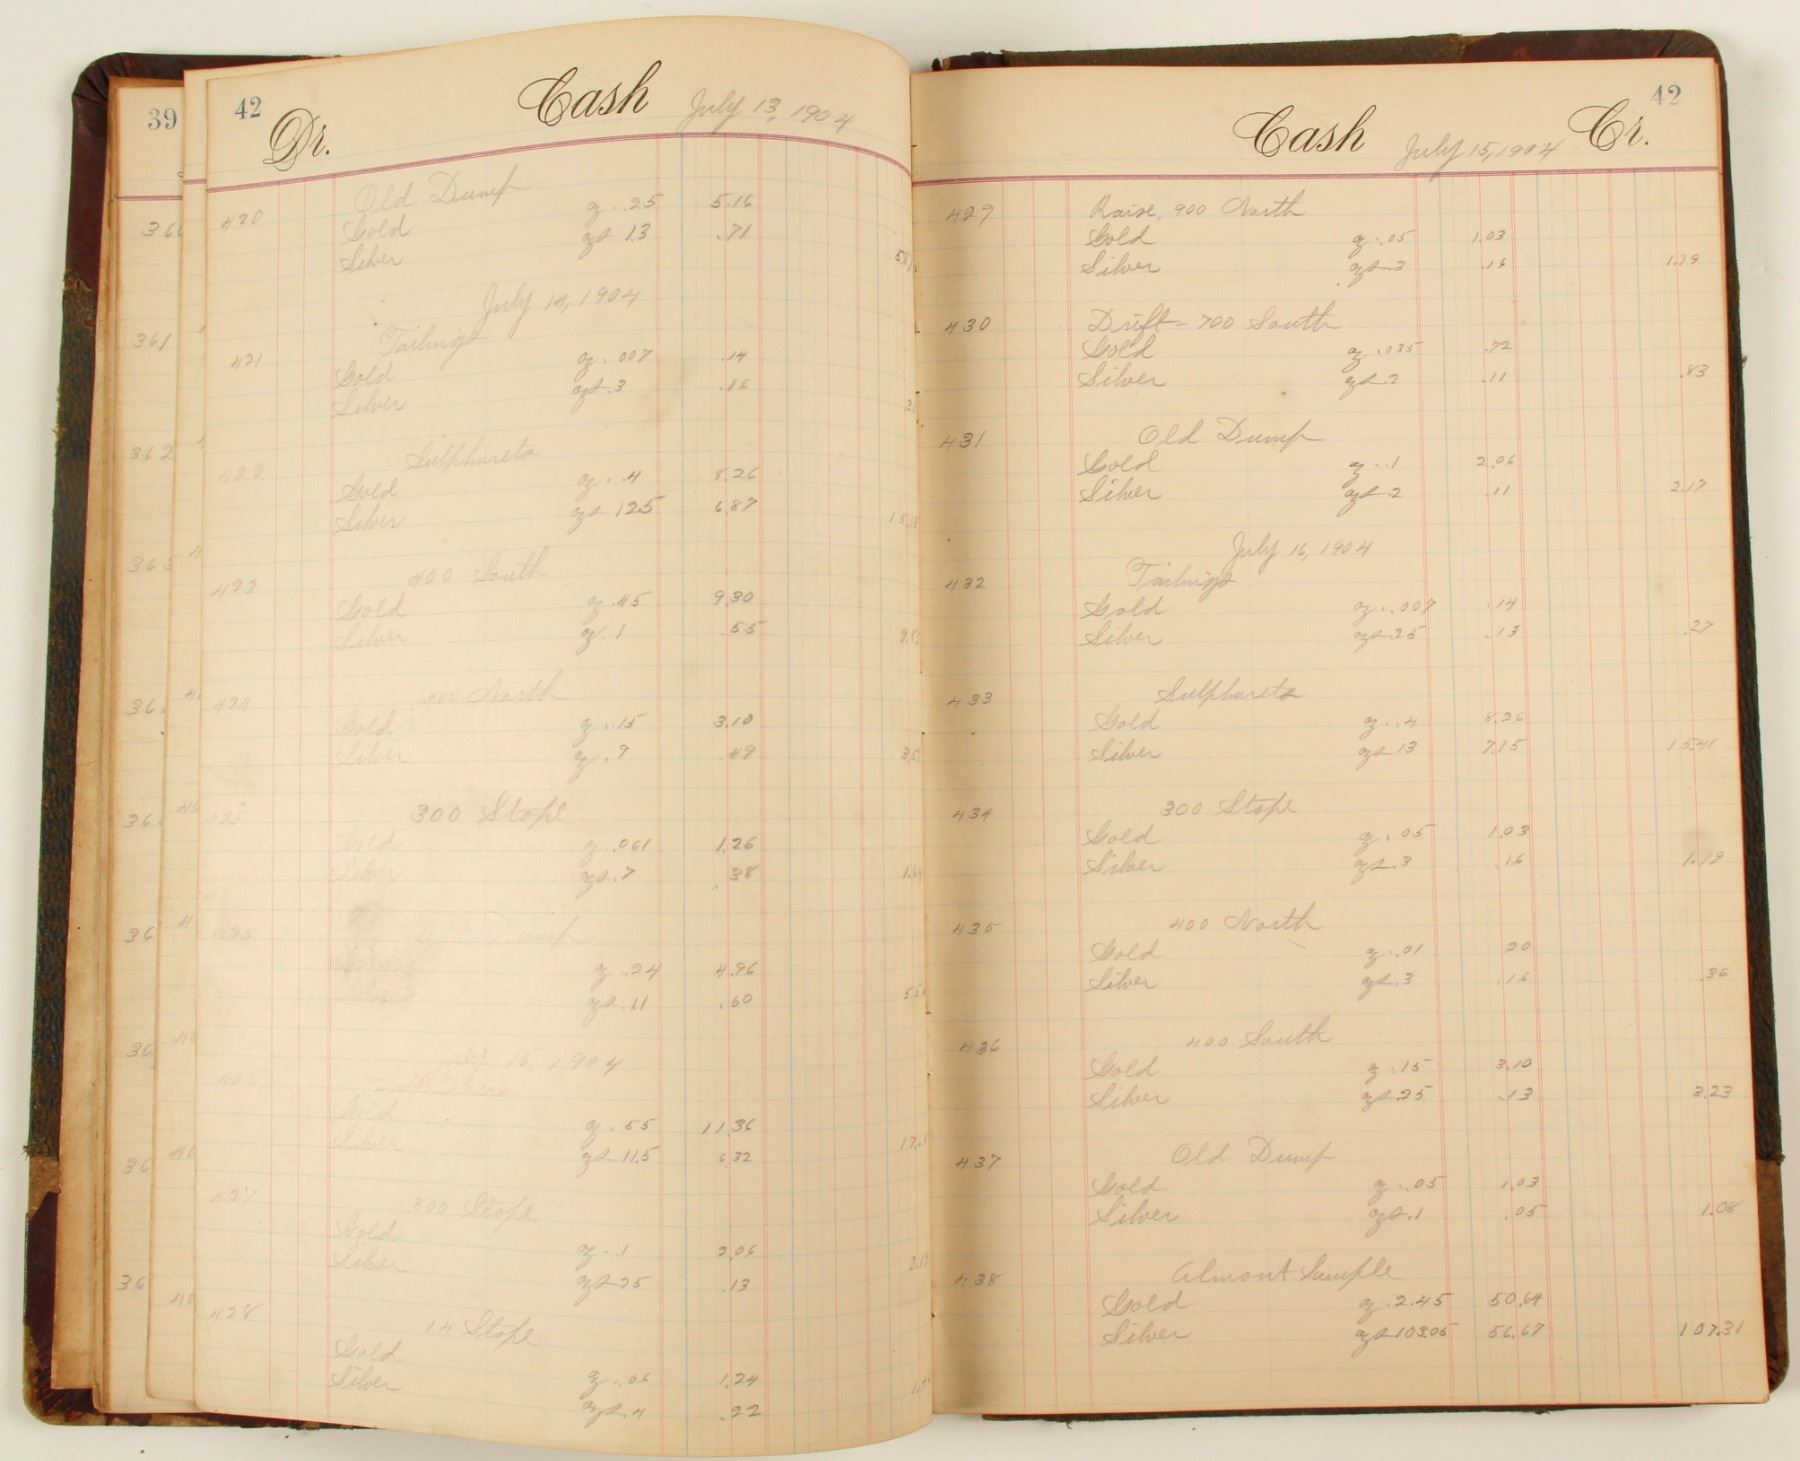 39
360
361
362
363
42
Dr.
Cash July 13, 1904
420 Old Dump
Gold oz .25 5.16
Silver ozs 1.3 .71
July 14, 1904
421 Tailings
Gold oz .007 .14
Silver ozs .3 .16
422 Sulphurets
Gold oz .4 8.26
Silver ozs 12.5 6.87
423 400 South
Gold oz .45 9.30
Silver oz. 1 .55
424 400 North
Gold oz .15 3.10
Silver oz. .9 .49
425 300 Stope
Gold oz .061 1.26
Silver ozs .7 .38
Dump
oz .24 4.96
ozs 1.1 .60
1904
Gold oz .55 11.36
Silver ozs 11.5 6.32
427 Stope
Gold oz .1 2.06
Silver ozs .25 .13
428 14 Stope
Gold oz .06 1.24
Silver ozs .4 .22
42
Cash July 15, 1904 Cr.
429 Raise, 900 North
Gold oz .05 1.03
Silver ozs .3 .16 1.79
430 Drift - 700 South
Gold oz .035 .72
Silver ozs .2 .11 .83
431 Old Dump
Gold oz .1 2.06
Silver ozs .2 .11 2.17
July 16, 1904
432 Tailings
Gold oz .007 .14
Silver ozs .25 .13 .27
433 Sulphurets
Gold oz .4 8.26
Silver ozs 13 7.15 15.41
434 300 Stope
Gold oz .05 1.03
Silver ozs .3 .16 1.19
435 400 North
Gold oz .01 20
Silver ozs .3 .16 .36
436 400 South
Gold oz .15 3.10
Silver ozs .25 .13 3.23
437 Old Dump
Gold oz .05 1.03
Silver ozs .1 .05 1.08
438 Almont Sample
Gold oz 2.45 50.64
Silver ozs 103.05 56.67 107.31